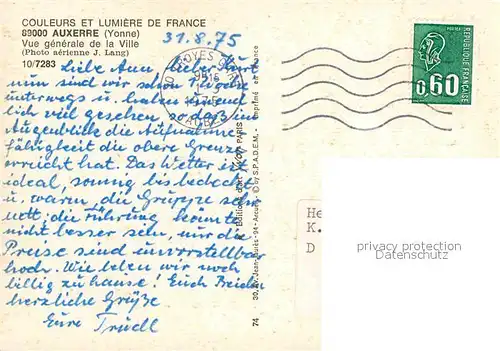 COULEURS ET LUMIÈRE DE FRANCE
89000 AUXERRE (Yonne)
Vue générale de la Ville
(Photo aérienne J. Lang)
10/7283
31.8.75
Liebe Ann, lieber Kurt
nun sind wir schon 7 Tage
unterwegs u. haben
lich viel gesehen, so daß im
Augenblick die Aufnahme-
fähigkeit die obere Grenze
erreicht hat. Das Wetter ist
ideal, sonnig bis bedeckt
u. warm, die Gruppe sehr
nett; die Führung könnte
nicht besser sein, nur die
Preise sind unvorstellbar
hoch. Wie leben wir noch
billig zu hause! Euch Beiden
herzliche Grüße
Eure Trudl
TROYES
1975
AUBE
REPUBLIQUE FRANÇAISE
0,60
Editions d'art YVON PARIS
74 - 30, Av. Jean-Jaurès - 94 - Arcueil - © by S.P.A.D.E.M. - Imprimé en France
He
K.
D
privacy protection
Datenschutz